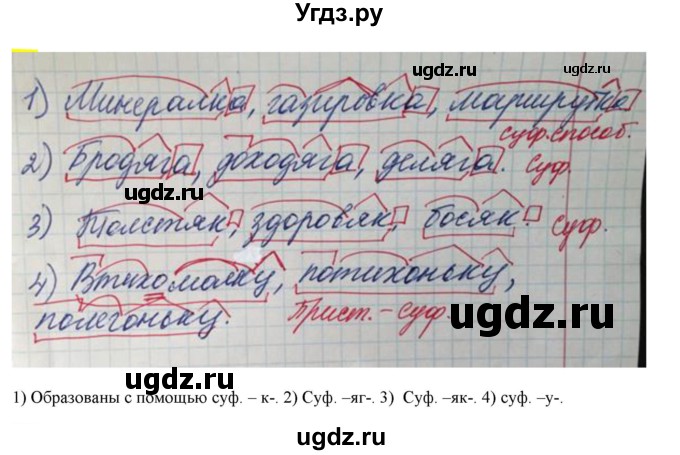 Угдз.ру
ugdz.ru
ugdz.ru
1) Минералка, газировка, маршрутка
суф. способ.
2) Бродяга, доходяга, деляга. Суф.
ugdz.ru
3) Толстяк, здоровяк, босяк. Суф.
ugdz.ru
4) Втихомолку, потихоньку,
полегоньку. Прист. – суф.
ugdz.ru
ugdz.ru
1) Образованы с помощью суф. – к-. 2) Суф. –яг-. 3) Суф. –як-. 4) суф. –у-.
ugdz.ru